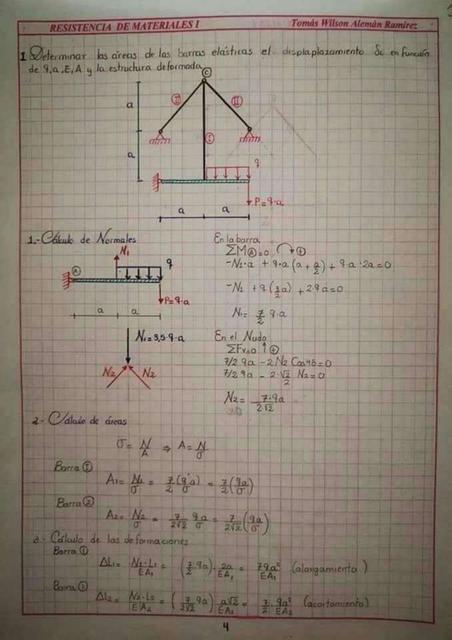 RESISTENCIA DE MATERIALES I Tomás Wilson Alemán Ramírez
1 Determinar las áreas de las barras elásticas el displaplazamiento δc en función
de q,a,E,A y la estructura deformada
C
a
II
II
I
a
q
P=q·a
a a
1.- Cálculo de Normales
N1
q
A
P=q·a
a a
N1=3,5·q·a
N2 N2
En la barra
ΣM(A)=0 +
-N1·a + q·a(a+a/2) + q·a·2a=0
-N1 + q(3/2 a) + 2qa=0
N1= 7/2 q·a
En el Nudo
ΣFv=0 ↑ +
7/2 qa - 2N2 Cos45=0
7/2 qa - 2·√2/2 N2=0
N2= 7·qa/2√2
2- Cálculo de áreas
σ= N/A ⇒ A= N/σ
Barra 1
A1= N1/σ = 7/2 (q·a/σ) = 7/2 (qa/σ)
Barra 2
A2= N2/σ = 7/2√2 qa/σ = 7/2√2 (qa/σ)
3- Cálculo de las deformaciones
Barra 1
ΔL1= N1·L1/EA1 = (7/2 qa)· 2a/EA1 = 7qa²/EA1 (alargamiento)
Barra
ΔL2= N2·L2/EA2 = (7/2√2 qa) a√2/EA2 = 7/2 qa²/EA2 (acortamiento)
4